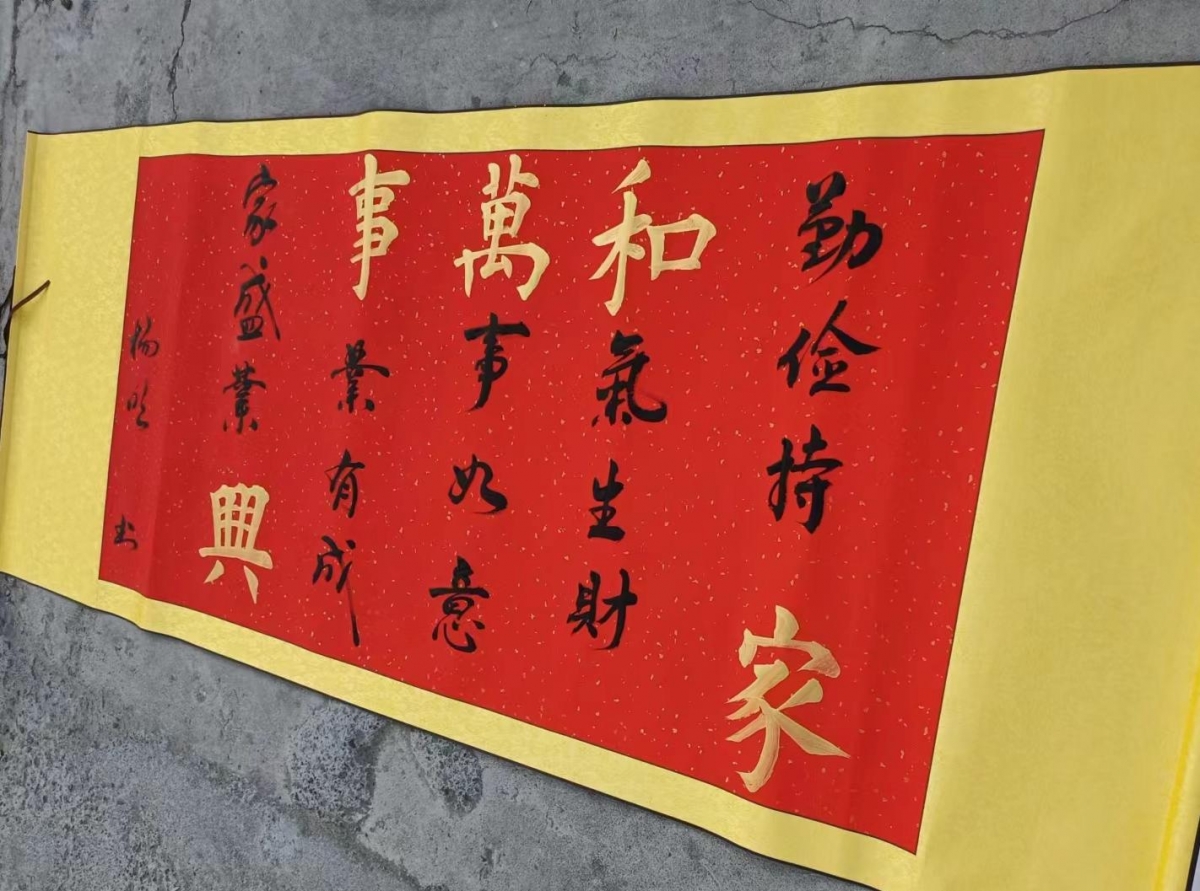 勤俭持家
和氣生財
萬事如意
事業有成
家盛業興
楊 书